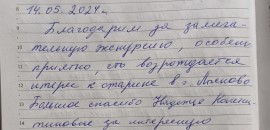 14.05.2024г.
Благодарим за замеча-
тельную экскурсию, особенно
приятно, что возрождается
интерес к старине в г.
Большое спасибо Надежде Констан-
тиновне за интересную